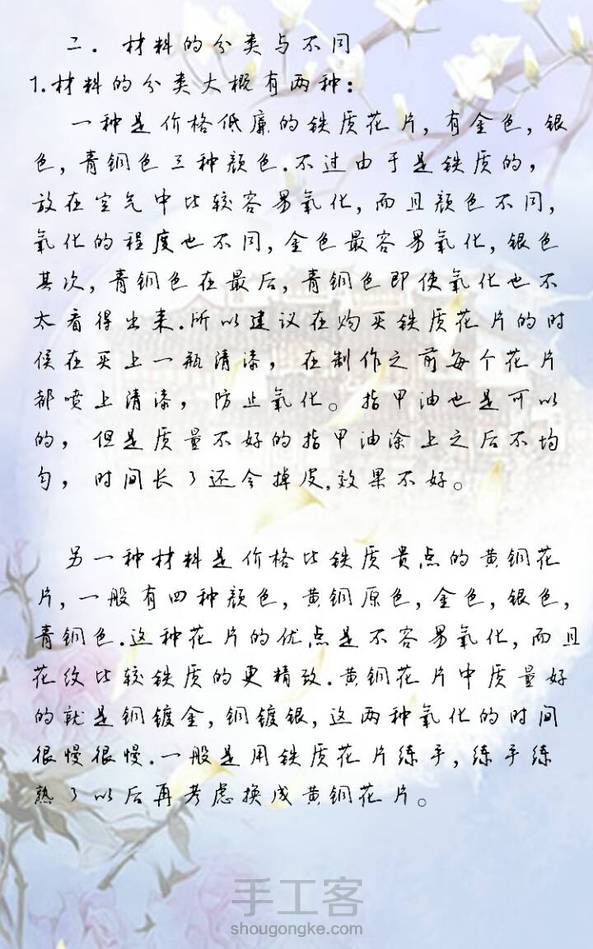 二. 材料的分类与不同
1.材料的分类大概有两种:
一种是价格低廉的铁质花片, 有金色, 银
色, 青铜色三种颜色.不过由于是铁质的,
放在空气中比较容易氧化, 而且颜色不同,
氧化的程度也不同, 金色最容易氧化, 银色
其次, 青铜色在最后, 青铜色即使氧化也不
太看得出来.所以建议在购买铁质花片的时
候在买上一瓶清漆, 在制作之前每个花片
都喷上清漆, 防止氧化。指甲油也是可以
的, 但是质量不好的指甲油涂上之后不均
匀, 时间长了还会掉皮,效果不好。
另一种材料是价格比铁质贵点的黄铜花
片, 一般有四种颜色, 黄铜原色, 金色, 银色,
青铜色.这种花片的优点是不容易氧化, 而且
花纹比较铁质的更精致.黄铜花片中质量好
的就是铜镀金, 铜镀银, 这两种氧化的时间
很慢很慢.一般是用铁质花片练手, 练手练
熟了以后再考虑换成黄铜花片。
手工客
shougongke.com